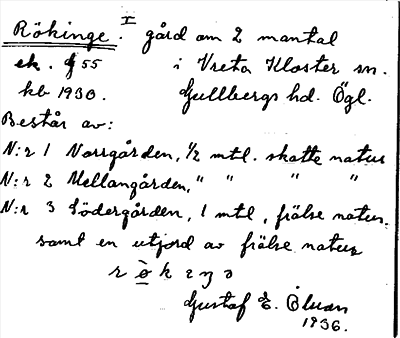 Rökinge. I gård om 2 mantal
ek. 55 i Vreta Kloster sn.
kb 1930. Gullbergs hd. Ögl.
Består av:
N:r 1 Norrgården, 1/2 mtl. skatte natur
N:r 2 Mellangården, " " " "
N:r 3 Södergården, 1 mtl, frälse natur.
samt en utjord av frälse natur
Gustaf E. Öman
1936.